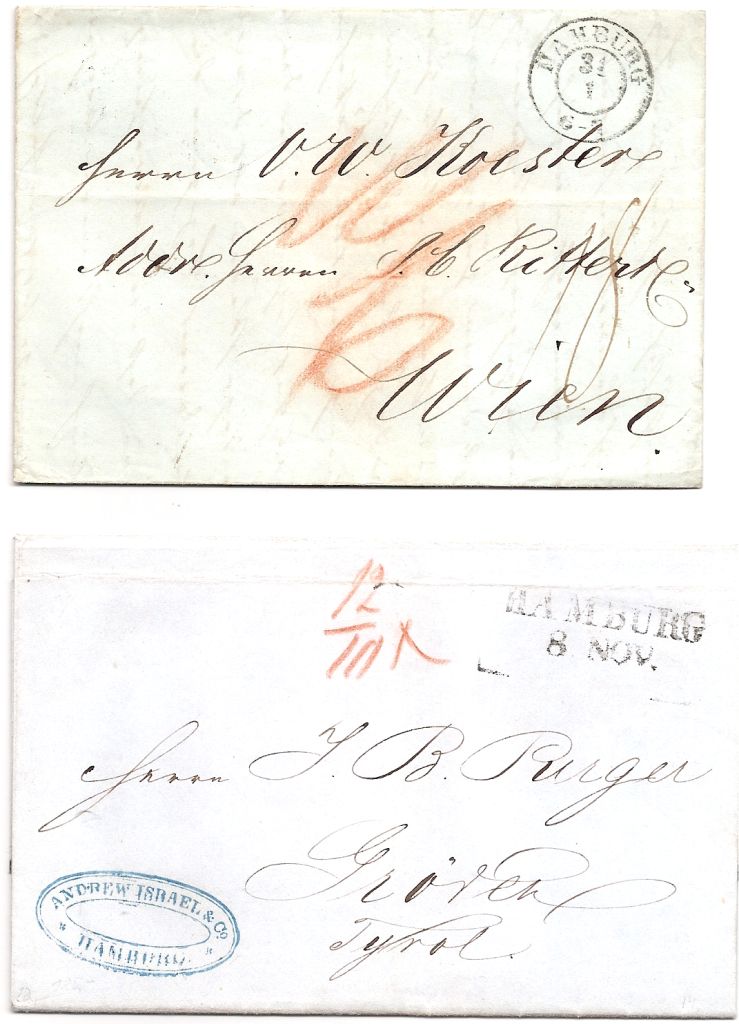 HARBURG
31
1
6-7
Herrn O. W. Koester
Addr. Herren
18
Wien.
12
10
HAMBURG
8 NOV.
Herrn J. B. Purger
Gröden
Tyrol.
ANDREW ISRAEL & Co
HAMBURG.